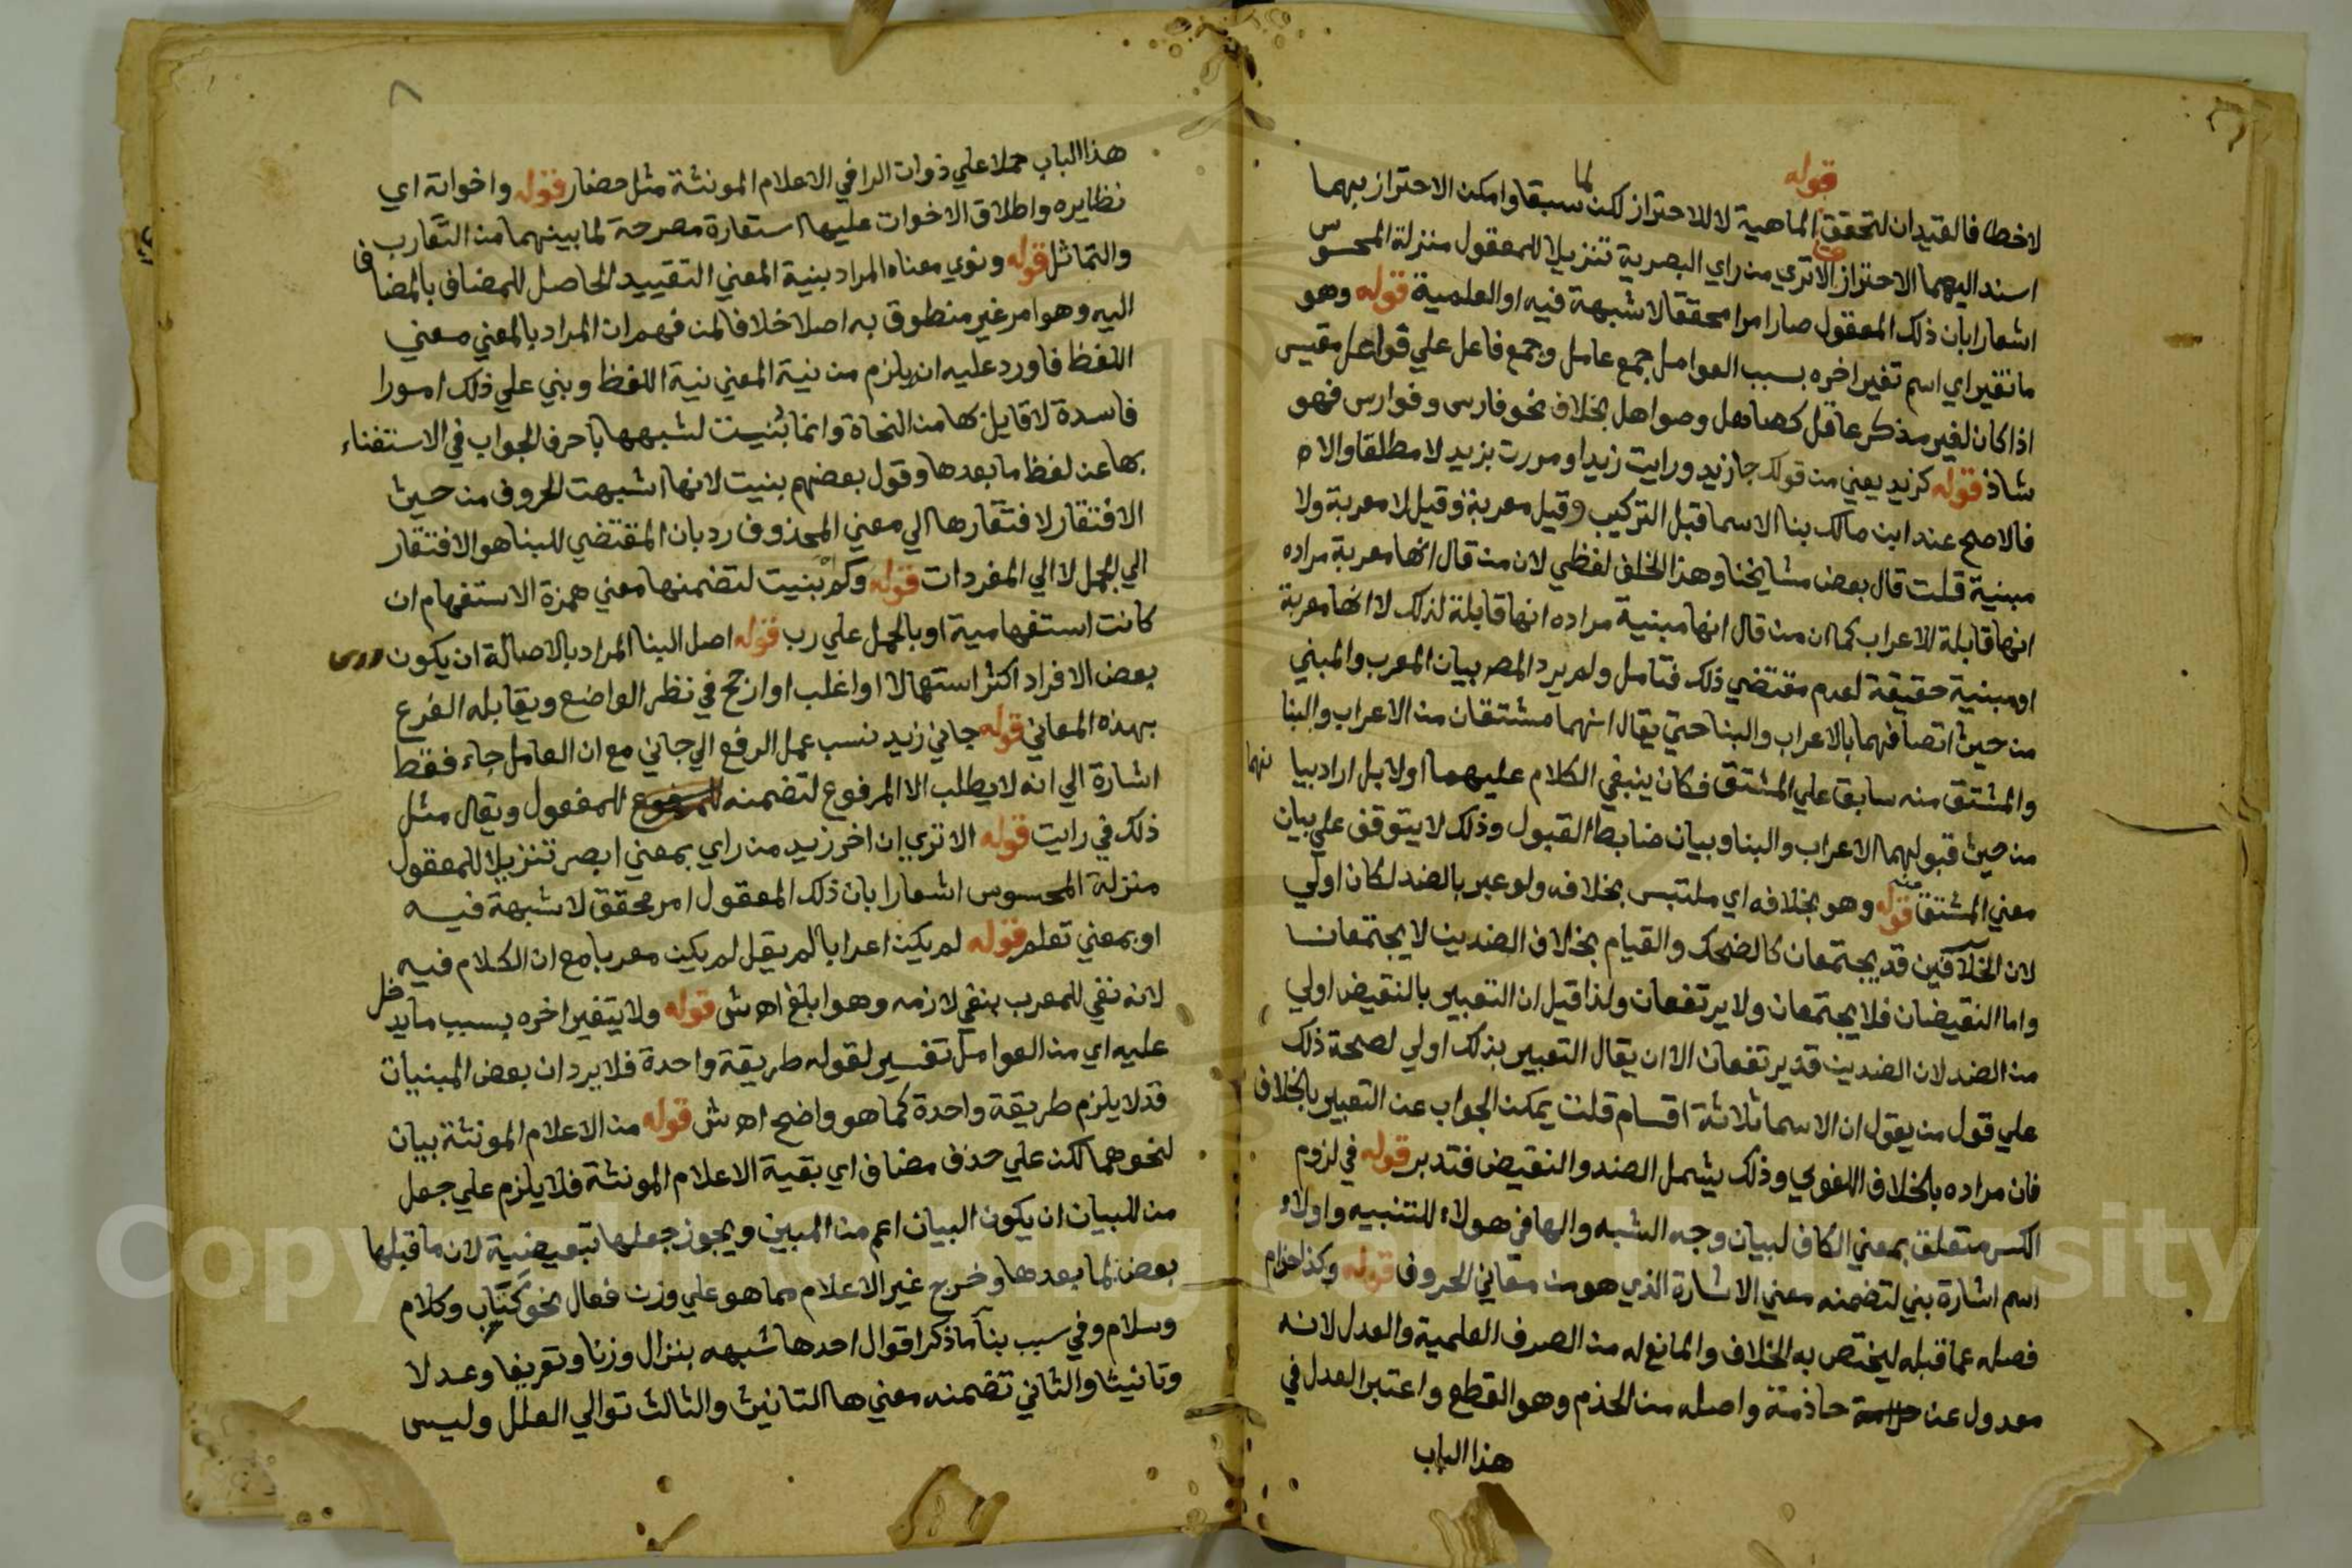 قوله
لاخطا فالقيدان لتحقق الماهية لا للاحتراز لكن لما سبقا وامكن الاحتراز بهما
اسند اليهما الاحتراز الا تري من راي البصرية تنزيلا للمعقول منزلة المحسوس
اشعارا بان ذلك المعقول صار امرا محققا لا شبهة فيه او العلمية قوله وهو
ما تغير اي اسم تغير اخره بسبب العوامل جمع عامل وجمع فاعل علي فواعل مقيس
اذا كان لغير مذكر عاقل كصاهل وصواهل بخلاف نحو فارس وفوارس فهو
شاذ قوله كزيد يعني من قولك جا زيد ورايت زيدا ومررت بزيد لا مطلقا والا
فالاصح عند ابن مالك بنا الاسما قبل التركيب وقيل معربة وقيل لا معربة ولا
مبنية قلت قال بعض مشايخنا وهذا الخلف لفظي لان من قال انها معربة مراده
انها قابلة للاعراب كما ان من قال انها مبنية مراده انها قابلة لذلك لا انها معربة
او مبنية حقيقة لعدم مقتضي ذلك فتامل ولم يرد المص بيان المعرب والمبني
من حيث اتصافهما بالاعراب والبنا حتي يقال انهما مشتقان من الاعراب والبنا
والمشتق منه سابق علي المشتق فكان ينبغي الكلام عليهما اولا بل اراد بيا نهما
من حيث قبولهما الاعراب والبنا وبيان ضابط القبول وذلك لا يتوقف علي بيان
معني المشتق منه قوله وهو بخلافه اي ملتبس بخلافه ولو عبر بالضد لكان اولي
لان الخلافين قد يجتمعان كالضحك والقيام بخلاف الضدين لا يجتمعان
واما النقيضان فلا يجتمعان ولا يرتفعان ولذا قيل ان التعبير بالنقيض اولي
من الضد لان الضدين قد يرتفعان الا ان يقال التعبير بذلك اولي لصحة ذلك
علي قول من يقول ان الاسما ثلاثة اقسام قلت يمكن الجواب عن التعبير بالخلاف
فان مراده بالخلاف اللغوي وذلك يشمل الضد والنقيض فتدبر قوله في لزوم
الكسر متعلق بمعني الكاف لبيان وجه الشبه والها في هولاء للتنبيه واولاء
اسم اشارة بني لتضمنه معني الاشارة الذي هو من معاني الحروف قوله وكذا حذام
فصله عما قبله ليختص به الخلاف والمانع له من الصرف العلمية والعدل لانه
معدول عن حاذمة واصله من الحذم وهو القطع واعتبر العدل في
هذا الباب
٨
هذا الباب حملا علي ذوات الرا في الاعلام المونثة مثل حضار قوله واخواته اي
نظايره واطلاق الاخوات عليها استعارة مصرحة لما بينهما من التقارب
والتماثل قوله ونوي معناه المراد بنية المعني التقييد الحاصل للمضاف بالمضاف
اليه وهو امر غير منطوق به اصلا خلافا لمن فهم ان المراد بالمعني معني
اللفظ فاورد عليه انه يلزم من نية المعني نية اللفظ وبني علي ذلك امورا
فاسدة لا قايل بها من النحاة وانما بنيت لشبهها باحرف الجواب في الاستغناء
بها عن لفظ ما بعدها وقول بعضهم بنيت لانها اشبهت الحروف من حيث
الافتقار لافتقارها الي معني المحذوف رد بان المقتضي للبنا هو الافتقار
الي الجمل لا الي المفردات قوله وكم بنيت لتضمنها معني همزة الاستفهام ان
كانت استفهامية او بالحمل علي رب قوله اصل البنا المراد بالاصالة ان يكون
بعض الافراد اكثر استعمالا او اغلب او ارجح في نظر الواضع ويقابله الفرع
بهذه المعاني قوله جاني زيد نسب عمل الرفع الي جاني مع ان العامل جاء فقط
اشارة الي انه لا يطلب الا المرفوع لتضمنه للمفعول ويقال مثل
ذلك في رايت قوله الا تري ان اخر زيد من راي بمعني ابصر تنزيلا للمعقول
منزلة المحسوس اشعارا بان ذلك المعقول امر محقق لا شبهة فيه
او بمعني تعلم قوله لم يكن اعرابا لم يقل لم يكن معربا مع ان الكلام فيه
لانه نفي للمعرب بنفي لازمه وهو ابلغ اه ش قوله ولا يتغير اخره بسبب ما يدخل
عليه اي من العوامل تفسير لقوله طريقة واحدة فلا يرد ان بعض المبنيات
قد لا يلزم طريقة واحدة كما هو واضح اه ش قوله من الاعلام المونثة بيان
لنحوهما لكن علي حذف مضاف اي بقية الاعلام المونثة فلا يلزم علي جعل
من للبيان ان يكون البيان اعم من المبين ويجوز جعلها تبعيضية لان ما قبلها
بعض لما بعدها وخرج غير الاعلام مما هو علي وزن فعال نحو كتاب وكلام
وسلام وفي سبب بنا ما ذكر اقوال احدها شبهه بنزال وزنا وتعريفا وعدلا
وتانيثا والثاني تضمنه معني ها التانيث والثالث توالي العلل وليس
Copyright © King Saud University